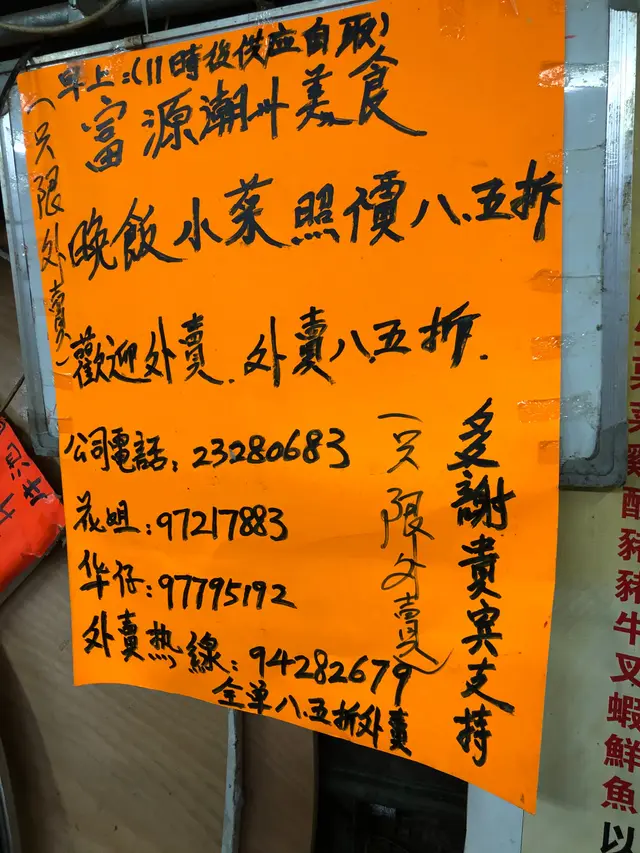 早上：(11時後供应自取)
富源潮州美食
(只限外賣)
晚飯小菜照價八.五折
歡迎外賣.外賣八.五折.
公司電話：23280683
花姐：97217883
华仔：97795192
外賣热線：94282679
全单八.五折外賣
(只限外賣)
多謝貴宾支持
菜雞酸豬豬牛叉蝦鮮魚以